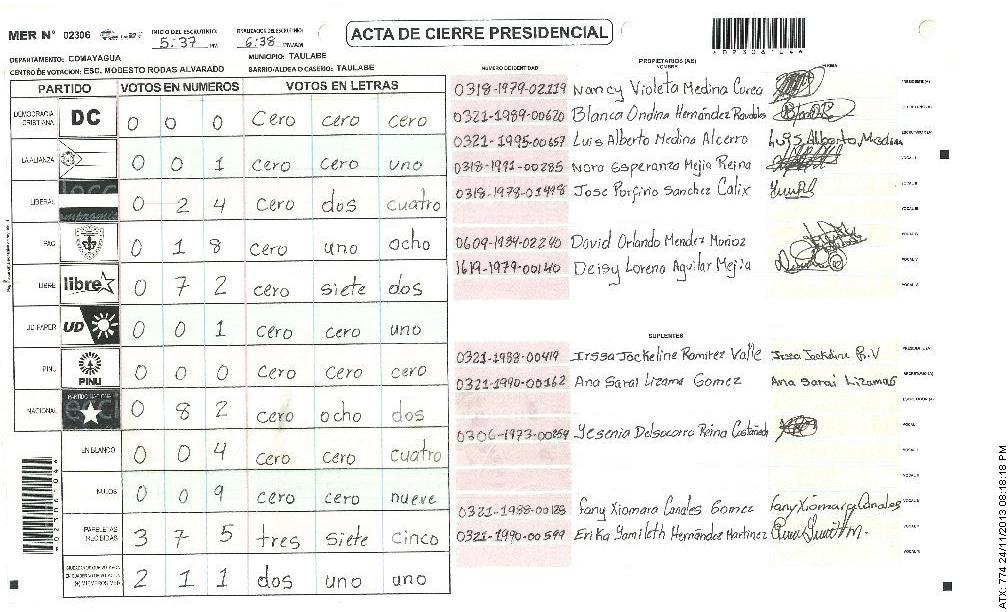 MER N° 02306
INICIO DEL ESCRUTINIO: 5:37 PM
FINALIZACION DEL ESCRUTINIO: 6:38 PM/AM
ACTA DE CIERRE PRESIDENCIAL
DEPARTAMENTO: COMAYAGUA
MUNICIPIO: TAULABE
CENTRO DE VOTACION: ESC. MODESTO RODAS ALVARADO
BARRIO/ALDEA O CASERIO: TAULABE
PARTIDO VOTOS EN NUMEROS VOTOS EN LETRAS
DEMOCRACIA CRISTIANA DC 0 0 0 cero cero cero
LA ALIANZA 0 0 1 cero cero uno
LIBERAL 0 2 4 cero dos cuatro
PAC 0 1 8 cero uno ocho
LIBRE libre 0 7 2 cero siete dos
UD-FAPER UD 0 0 1 cero cero uno
PINU PINU 0 0 0 cero cero cero
NACIONAL 0 8 2 cero ocho dos
EN BLANCO 0 0 4 cero cero cuatro
NULOS 0 0 9 cero cero nueve
PAPELETAS RECIBIDAS 3 7 5 tres siete cinco
2 1 1 dos uno uno
NUMERO DE IDENTIDAD
PROPIETARIOS (AS)
NOMBRE
FIRMA
0318-1979-02119 Nancy Violeta Medina Corea
0321-1989-00620 Blanca Ondina Hernández
0321-1995-00657 Luis Alberto Medina Alcerro Luis Alberto Medin
0318-1971-00285 Nora Esperanza Mejia Reina
0318-1978-01498 Jose Porfirio Sanchez Calix
0609-1984-02240 David Orlando Mendez Muñoz
1619-1979-00140 Deisy Lorena Aguilar Mejia
SUPLENTES
0321-1988-00419 Irssa Jackeline Ramirez Valle Irssa Jackeline R.V
0321-1990-00162 Ana Sarai Lizama Gomez Ana Sarai Lizamas
0306-1973-00259 Yesenia Delsocorro Reina Castañeda
0321-1988-00128 Fany Xiomara Canales Gomez Fany Xiomara Canales
0321-1990-00599 Erika Yamileth Hernández Martinez
ATX: 774 24/11/2013 08:18:18 PM